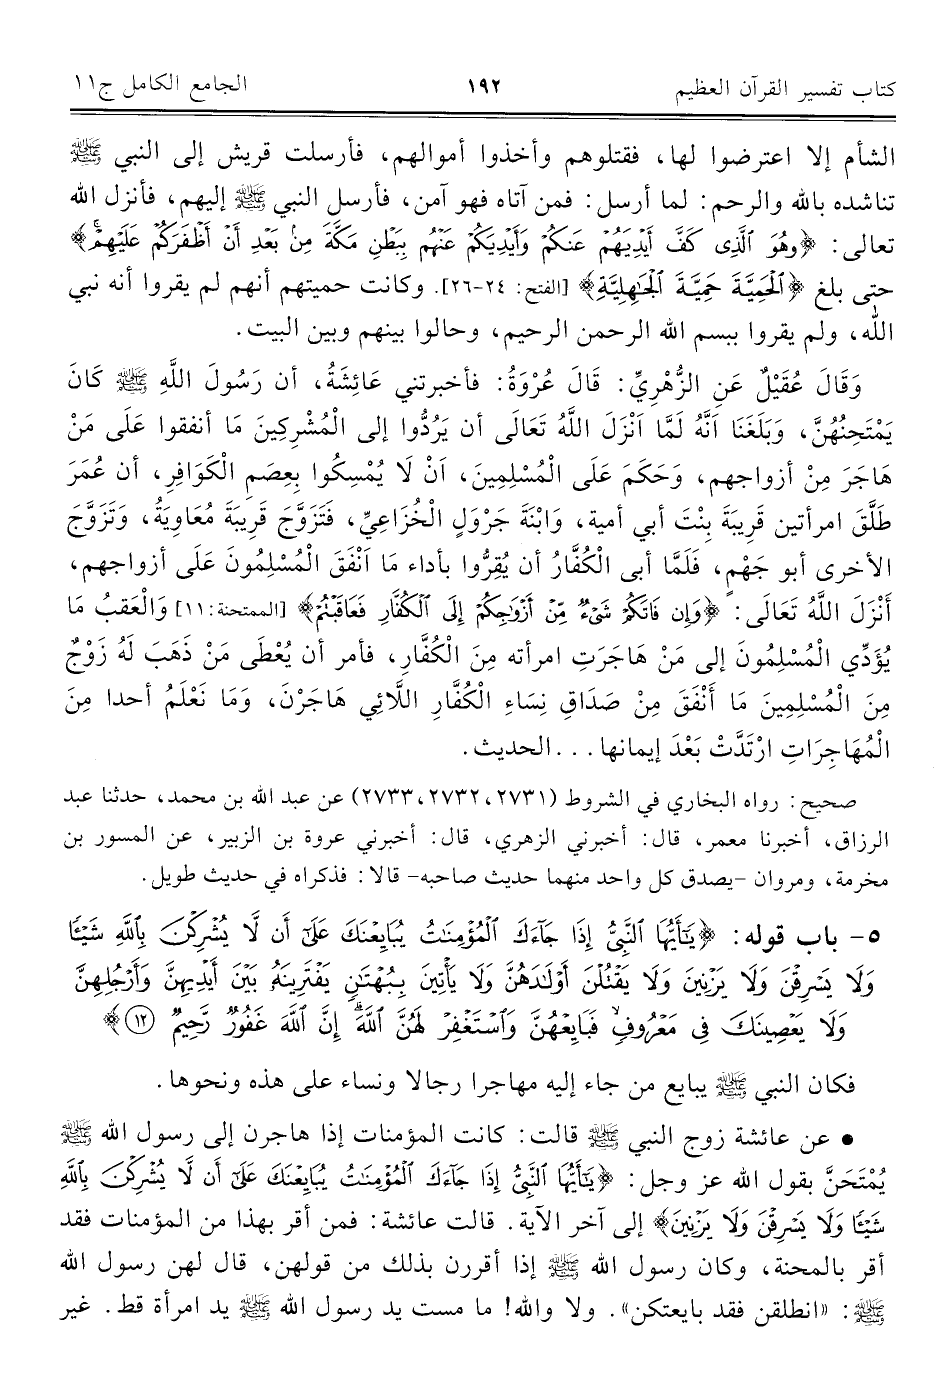 كتاب تفسير القرآن العظيم ١٩٢ الجامع الكامل ج١١
الشأم إلا اعترضوا لها، فقتلوهم وأخذوا أموالهم، فأرسلت قريش إلى النبي ﷺ
تناشده بالله والرحم: لما أرسل: فمن آتاه فهو آمن، فأرسل النبي ﷺ إليهم، فأنزل الله
تعالى: ﴿وَهُوَ ٱلَّذِى كَفَّ أَيْدِيَهُمْ عَنكُمْ وَأَيْدِيَكُمْ عَنْهُم بِبَطْنِ مَكَّةَ مِنۢ بَعْدِ أَنْ أَظْفَرَكُمْ عَلَيْهِمْۚ﴾
حتى بلغ ﴿ٱلْحَمِيَّةَ حَمِيَّةَ ٱلْجَٰهِلِيَّةِ﴾ [الفتح: ٢٤-٢٦]. وكانت حميتهم أنهم لم يقروا أنه نبي
الله، ولم يقروا ببسم الله الرحمن الرحيم، وحالوا بينهم وبين البيت.
وَقَالَ عُقَيْلٌ عَنِ الزُّهْرِيِّ: قَالَ عُرْوَةُ: فأخبرتني عَائِشَةُ، أن رَسُولَ اللَّهِ ﷺ كَانَ
يَمْتَحِنُهُنَّ، وَبَلَغَنَا أَنَّهُ لَمَّا أَنْزَلَ اللَّهُ تَعَالَى أن يَرُدُّوا إلى الْمُشْرِكِينَ مَا أنفقوا عَلَى مَنْ
هَاجَرَ مِنْ أزواجهم، وَحَكَمَ عَلَى الْمُسْلِمِينَ، أَنْ لَا يُمْسِكُوا بِعِصَمِ الْكَوَافِرِ، أن عُمَرَ
طَلَّقَ امرأتين قَرِيبَةَ بِنْتَ أبي أمية، وَابْنَةَ جَرْوَلٍ الْخُزَاعِيِّ، فَتَزَوَّجَ قَرِيبَةَ مُعَاوِيَةُ، وَتَزَوَّجَ
الأخرى أبو جَهْمٍ، فَلَمَّا أبى الْكُفَّارُ أن يُقِرُّوا بأداء مَا أَنْفَقَ الْمُسْلِمُونَ عَلَى أزواجهم،
أَنْزَلَ اللَّهُ تَعَالَى: ﴿وَإِن فَاتَكُمْ شَىْءٌ مِّنْ أَزْوَٰجِكُمْ إِلَى ٱلْكُفَّارِ فَعَاقَبْتُمْ﴾ [الممتحنة: ١١] وَالْعَقِبُ مَا
يُؤَدِّي الْمُسْلِمُونَ إلى مَنْ هَاجَرَتِ امرأته مِنَ الْكُفَّارِ، فأمر أن يُعْطَى مَنْ ذَهَبَ لَهُ زَوْجٌ
مِنَ الْمُسْلِمِينَ مَا أَنْفَقَ مِنْ صَدَاقِ نِسَاءِ الْكُفَّارِ اللَّائِي هَاجَرْنَ، وَمَا نَعْلَمُ أحدا مِنَ
الْمُهَاجِرَاتِ ارْتَدَّتْ بَعْدَ إيمانها... الحديث.
صحيح: رواه البخاري في الشروط (٢٧٣١، ٢٧٣٢، ٢٧٣٣) عن عبد الله بن محمد، حدثنا عبد
الرزاق، أخبرنا معمر، قال: أخبرني الزهري، قال: أخبرني عروة بن الزبير، عن المسور بن
مخرمة، ومروان -يصدق كل واحد منهما حديث صاحبه- قالا: فذكراه في حديث طويل.
٥- باب قوله: ﴿يَٰٓأَيُّهَا ٱلنَّبِىُّ إِذَا جَآءَكَ ٱلْمُؤْمِنَٰتُ يُبَايِعْنَكَ عَلَىٰٓ أَن لَّا يُشْرِكْنَ بِٱللَّهِ شَيْـًٔا
وَلَا يَسْرِقْنَ وَلَا يَزْنِينَ وَلَا يَقْتُلْنَ أَوْلَٰدَهُنَّ وَلَا يَأْتِينَ بِبُهْتَٰنٍ يَفْتَرِينَهُۥ بَيْنَ أَيْدِيهِنَّ وَأَرْجُلِهِنَّ
وَلَا يَعْصِينَكَ فِى مَعْرُوفٍۙ فَبَايِعْهُنَّ وَٱسْتَغْفِرْ لَهُنَّ ٱللَّهَۖ إِنَّ ٱللَّهَ غَفُورٌ رَّحِيمٌ ١٢﴾
فكان النبي ﷺ يبايع من جاء إليه مهاجرا رجالا ونساء على هذه ونحوها.
• عن عائشة زوج النبي ﷺ قالت: كانت المؤمنات إذا هاجرن إلى رسول الله ﷺ
يُمْتَحَنَّ بقول الله عز وجل: ﴿يَٰٓأَيُّهَا ٱلنَّبِىُّ إِذَا جَآءَكَ ٱلْمُؤْمِنَٰتُ يُبَايِعْنَكَ عَلَىٰٓ أَن لَّا يُشْرِكْنَ بِٱللَّهِ
شَيْـًٔا وَلَا يَسْرِقْنَ وَلَا يَزْنِينَ﴾ إلى آخر الآية. قالت عائشة: فمن أقر بهذا من المؤمنات فقد
أقر بالمحنة، وكان رسول الله ﷺ إذا أقررن بذلك من قولهن، قال لهن رسول الله
ﷺ: «انطلقن فقد بايعتكن». ولا والله! ما مست يد رسول الله ﷺ يد امرأة قط. غير